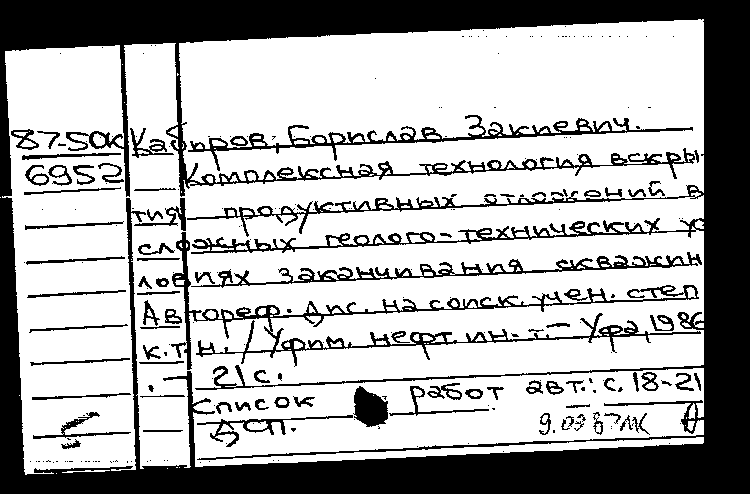 87-50к Кабыров, Борислав Закиевич.
6952 Комплексная технология вскры-
тия продуктивных отложений в
сложных геолого-технических ус
ловиях заканчивания скважин
Автореф. дис. на соиск. учен. степ
к.т.н. / Уфим. нефт. ин-т. – Уфа, 1986
. – 21 с.
Список работ авт.: с. 18-21
ДСП.